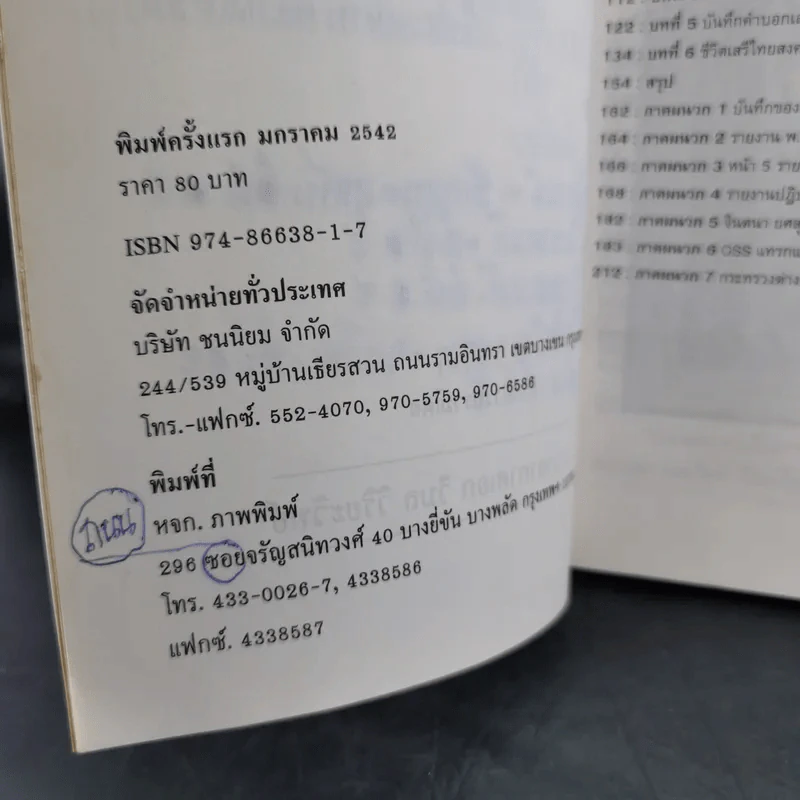 พิมพ์ครั้งแรก มกราคม 2542
ราคา 80 บาท
ISBN 974-86638-1-7
จัดจำหน่ายทั่วประเทศ
บริษัท ชนนิยม จำกัด
244/539 หมู่บ้านเธียรสวน ถนนรามอินทรา เขตบางเขน
โทร.-แฟกซ์. 552-4070, 970-5759, 970-6586
พิมพ์ที่
ถนน
หจก. ภาพพิมพ์
296 ซอยจรัญสนิทวงศ์ 40 บางยี่ขัน บางพลัด กรุงเทพฯ
โทร. 433-0026-7, 4338586
แฟกซ์. 4338587
122 : บทที่ 5 บันทึกคำบอกเล
134 : บทที่ 6 ชีวิตเสรีไทยสงค
154 : สรุป
162 : ภาคผนวก 1 บันทึกของ
164 : ภาคผนวก 2 รายงาน พ.
166 : ภาคผนวก 3 หน้า 5 ราย
168 : ภาคผนวก 4 รายงานปฏิบ
182 : ภาคผนวก 5 จินตนา ยศสุ
: ภาคผนวก 6 OSS แทรกแ
212 : ภาคผนวก 7 กระทรวงต่าง